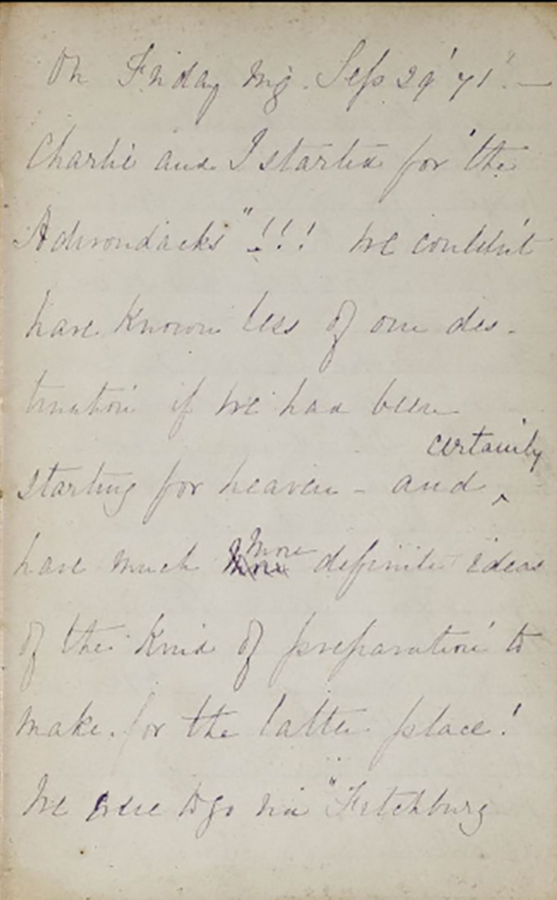 On Friday mg. Sep 29' 71" —
Charlie and I started for "the
Adirondacks" !!! We couldn't
have known less of our des-
tination if we had been
certainly
starting for heaven – and ‸
more
have much definite ideas
of the kind of preparation to
make for the latter place!
We were to go via "Fitchburg